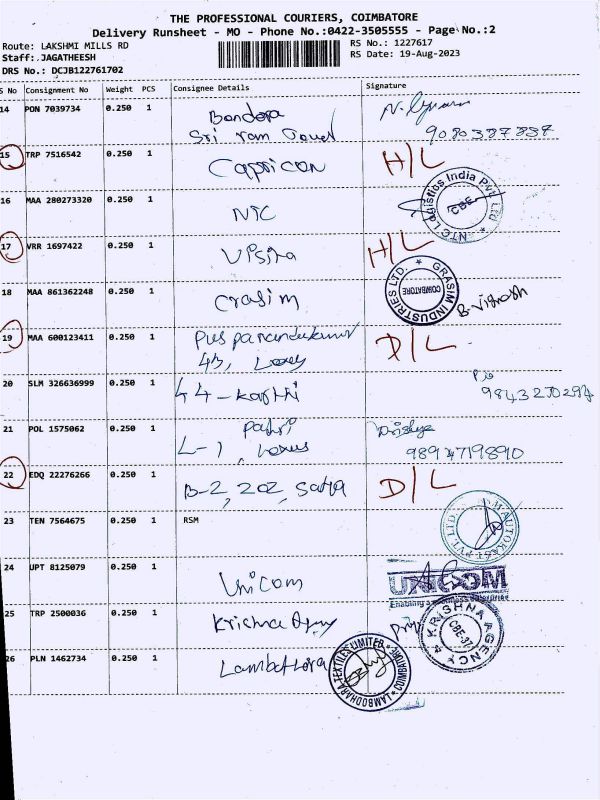 THE PROFESSIONAL COURIERS, COIMBATORE
Delivery Runsheet - MO - Phone No.:0422-3505555 - Page No.:2
Route: LAKSHMI MILLS RD
RS No.: 1227617
Staff: JAGATHEESH
RS Date: 19-Aug-2023
DRS No.: DCJB122761702
S No Consignment No Weight PCS Consignee Details Signature
14 PDN 7039734 0.250 1 Bandera
Sri ram
9080387837
15 TRP 7516542 0.250 1 Capricon H/L
16 MAA 280273320 0.250 1 NTC NTC Logistics India Pvt Ltd CBE
17 VRR 1697422 0.250 1 H/L
18 MAA 861362248 0.250 1 Grasim GRASIM INDUSTRIES LTD. COIMBATORE
19 MAA 600123411 0.250 1 D/L
20 SLM 326636999 0.250 1 44-
21 POL 1575062 0.250 1
L-1,
9894719890
22 EDQ 22276266 0.250 1 B-2, 202, Satya D/L
23 TEN 7564675 0.250 1 RSM
24 UPT 8125079 0.250 1 Unicom UNICOM
25 TRP 2500036 0.250 1 Krishna Agny KRISHNA AGENCY CBE-37
26 PLN 1462734 0.250 1 LAMBODHARA TEXTILES LIMITED COIMBATORE